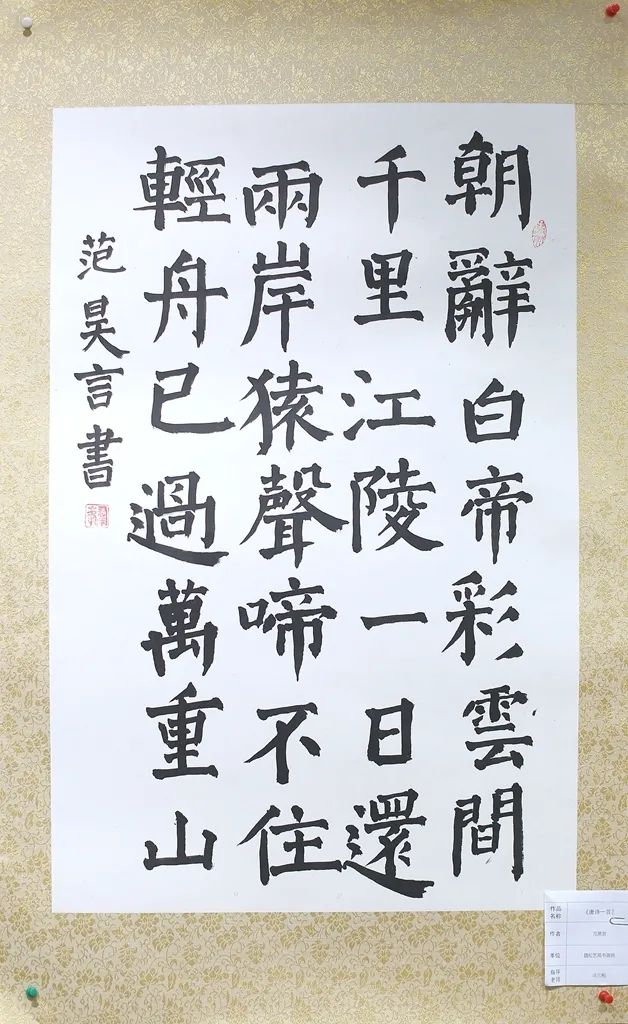 朝辭白帝彩雲間
千里江陵一日還
兩岸猿聲啼不住
輕舟已過萬重山
范昊言書
作品名称 《唐诗一首》
作者
单位
指导老师